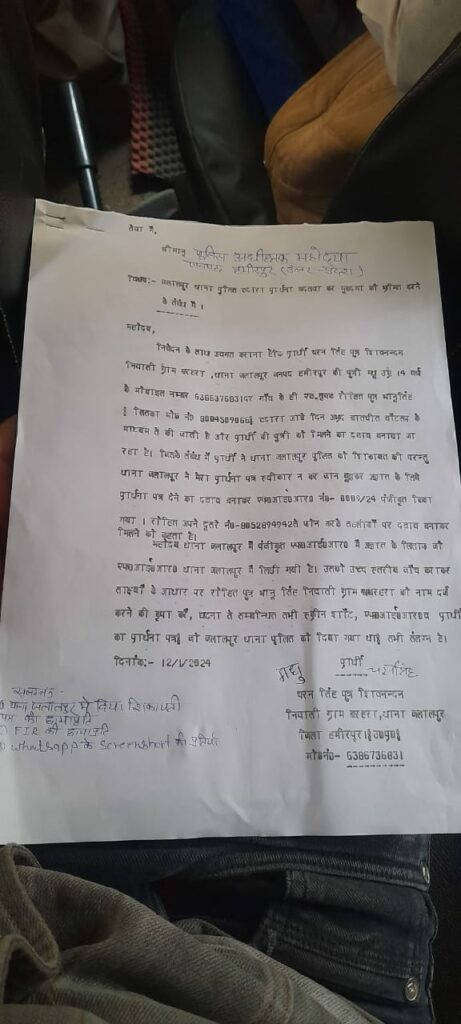 सेवा में,
श्रीमान् पुलिस अधीक्षक महोदया
जनपद हमीरपुर (उत्तर-प्रदेश)
विषय:- जलालपुर थाना पुलिस द्वारा प्रार्थना बदलवा कर मुकदमा की करने
के संबंध में ।
महोदय,
निवेदन के साथ अवगत कराना है कि प्रार्थी चरन सिंह पुत्र शिवनन्दन
निवासी ग्राम बरहरा ,थाना जलालपुर जनपद हमीरपुर की पुत्री मधु उम्र 14 वर्ष
के मोबाइल नम्बर गाँव के ही युवक रोहित पुत्र भानुसिंह
जिसका मो0 न0 द्वारा आये दिन अभद्र बातचीत वॉटसप के
माध्यम से की जाती है और प्रार्थी की पुत्री को मिलने का दबाव बनाया जा
रहा है। जिसके संबंध में प्रार्थी ने थाना जलालपुर पुलिस को शिकायत की परन्तु
थाना जलालपुर ने मेरा प्रार्थना पत्र स्वीकार न कर जान बूझकर अज्ञात के लिये
प्रार्थना पत्र देने का दबाव बनाकर एफ0आई0आर0 न0- 0009/24 पंजीकृत किया
गया । रोहित अपने दूसरे न0-8052894942से फोन करके दबाव बनाकर
मिलने को कहता है।
महोदय थाना जलालपुर में पंजीकृत एफ0आई0आर0 में अज्ञात के खिलाफ जो
एफ0आई0आर0 थाना जलालपुर में लिखी गयी है। उसकी उच्च स्तरीय जाँच कराकर
साक्ष्यों के आधार पर रोहित पुत्र भानु सिंह निवासी ग्राम बरहरा को नाम दर्ज
करने की कृपा करें, घटना से सम्बन्धित सभी स्क्रीन शॉट, एफ0आई0आर0व प्रार्थी
का प्रार्थना पत्र जो जलालपुर थाना पुलिस को दिया गया था सभी संलग्न है।
दिनांक:- 12/1/2024
मधु प्रार्थी चरन सिंह
चरन सिंह पुत्र शिवनन्दन
निवासी ग्राम बरहरा,थाना जलालपुर
जिला हमीरपुर उ0प्र0
मो0न0- 6386736831
संलग्नक -
थाना जलालपुर में दिया शिकायती
पत्र की छायाप्रति
FIR की छायाप्रति
whatsapp के screenshort की प्रतियां